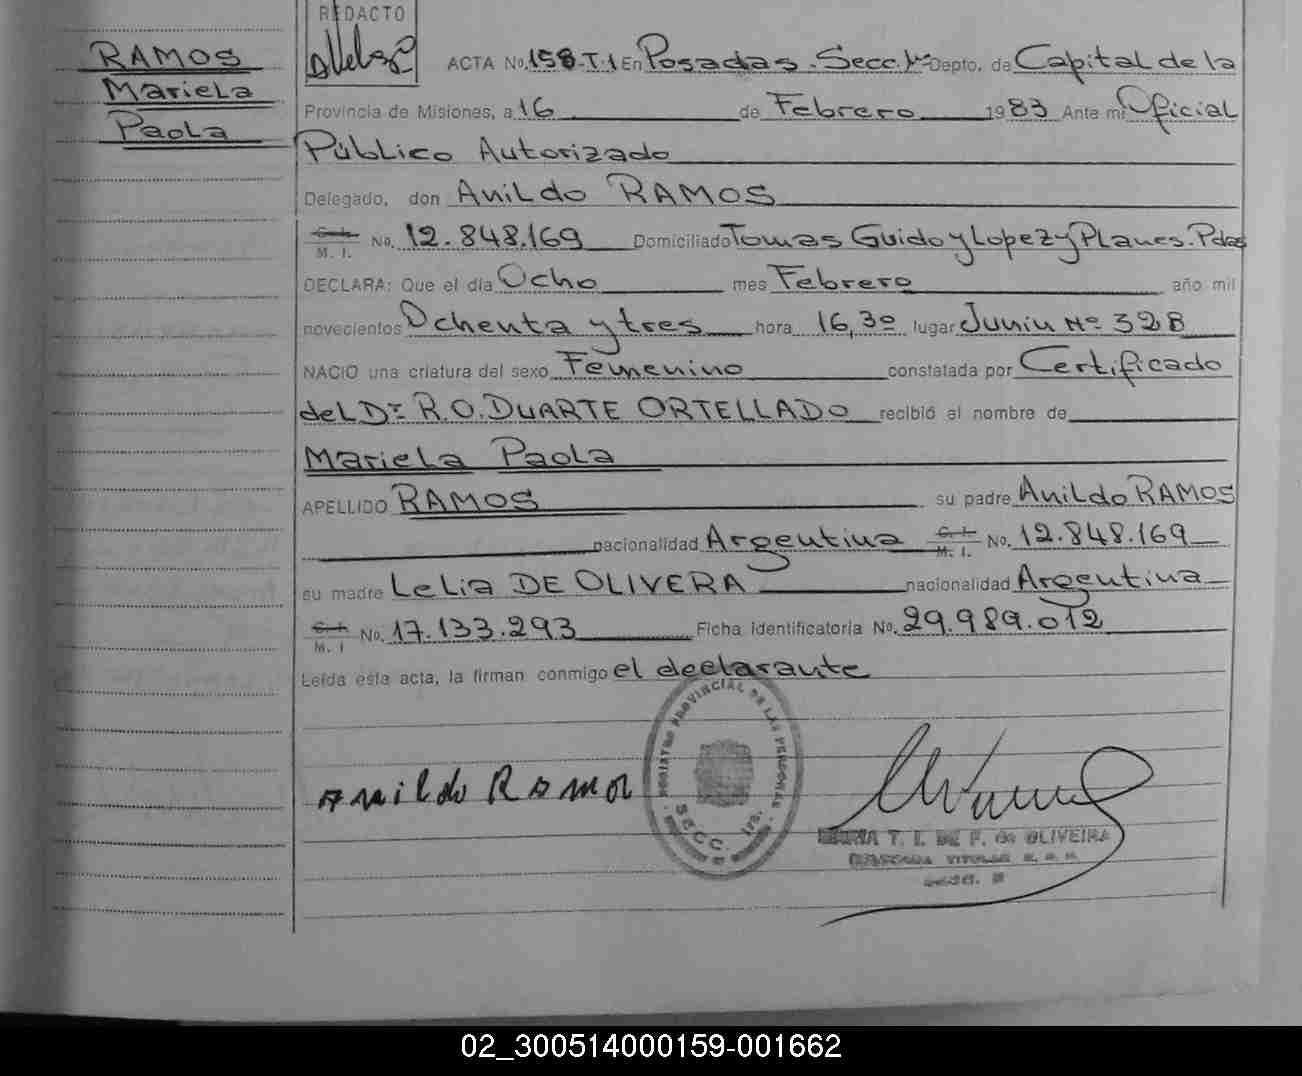 RAMOS
Mariela
Paola
REDACTO
ACTA No. 158-T.1 En Posadas. Secc. 1ra Depto. de Capital de la
Provincia de Misiones, a 16 de Febrero 1983 Ante mi Oficial
Público Autorizado
Delegado, don Anildo RAMOS
C. I.
M. I. No. 12.848.169 Domiciliado Tomas Guido y Lopez y Planes. Pdas
DECLARA: Que el día Ocho mes Febrero año mil
novecientos Ochenta y tres hora 16,30 lugar Junin Nº 328
NACIO una criatura del sexo Femenino constatada por Certificado
del Dr. R.O. DUARTE ORTELLADO recibió el nombre de
Mariela Paola
APELLIDO RAMOS su padre Anildo RAMOS
nacionalidad Argentina C. I. M. I. No. 12.848.169
su madre Lelia DE OLIVERA nacionalidad Argentina
C. I.
M. I No. 17.133.293 Ficha identificatoria No. 29.989.012
Leída esta acta, la firman conmigo el declarante
REGISTRO PROVINCIAL DE LAS PERSONAS
SECC. 1ra.
Anildo Ramos
MARIA T. I. DE F. de OLIVEIRA
02_300514000159-001662